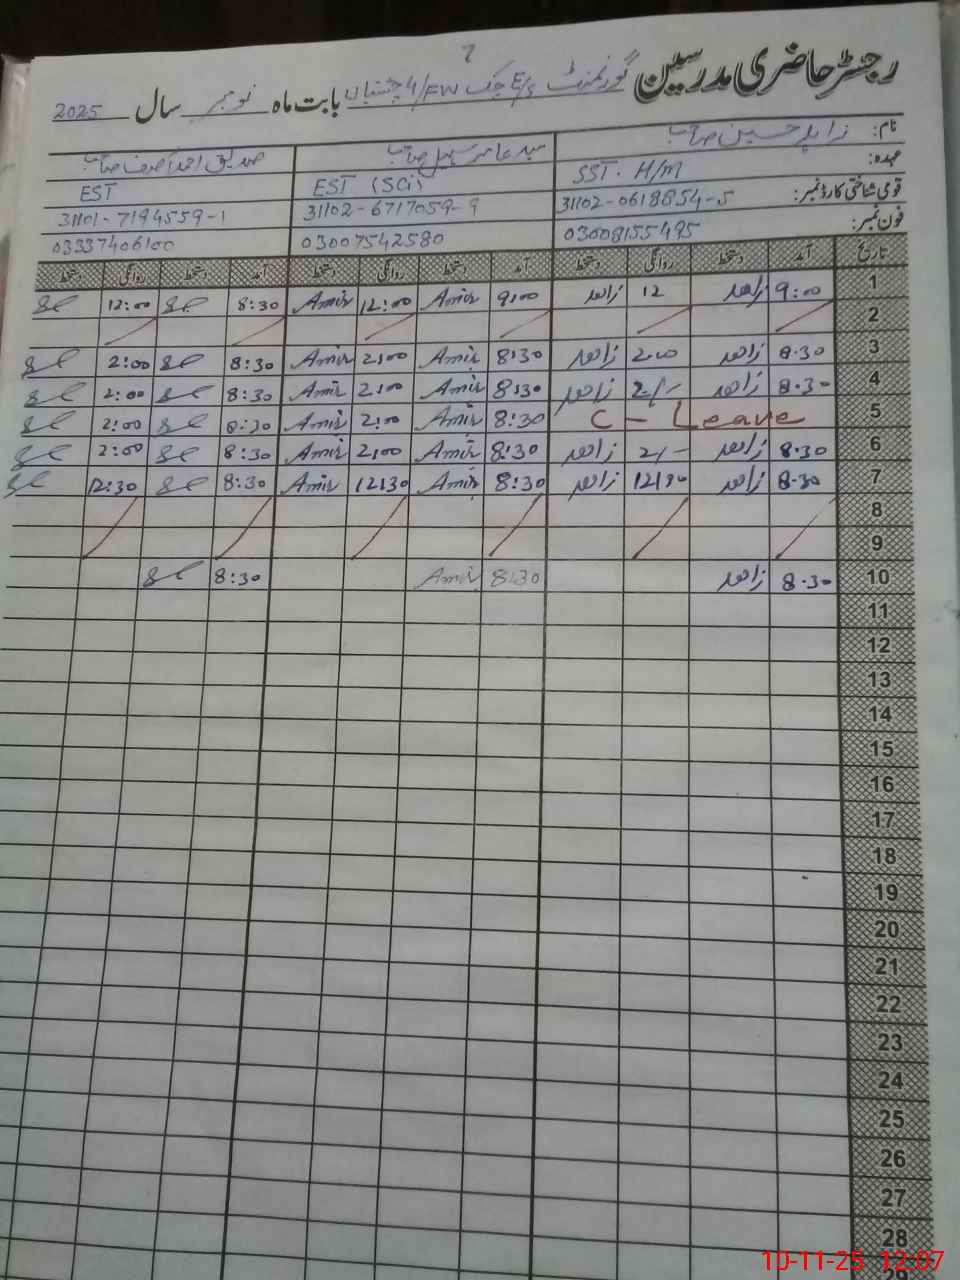 رجسٹر حاضری مدرسین گورنمنٹ E/s چک 4/FW چشتیاں بابت ماہ نومبر سال 2025
نام: زاہد حسین صاحب سید عامر سہیل صاحب صدیق احمد صاحب
عہدہ: SST. H/M EST (SCi) EST
قومی شناختی کارڈ نمبر: 31102-0618854-5 31102-6717059-9 31101-7194559-1
فون نمبر: 03008155495 03007542580 03337406100
تاریخ آمد دستخط روانگی دستخط آمد دستخط روانگی دستخط آمد دستخط روانگی دستخط
1 9:00 زاھد 12 زاھد 9:00 Amir 12:00 Amir 8:30 12:00
2
3 8:30 زاھد 2:00 زاھد 8:30 Amir 2:00 Amir 8:30 2:00
4 8:30 زاھد 2/- زاھد 8:30 Amir 2:00 Amir 8:30 2:00
5 C - Leave 8:30 Amir 2:00 Amir 8:30 2:00
6 8:30 زاھد 2/- زاھد 8:30 Amir 2:00 Amir 8:30 2:00
7 8:30 زاھد 12:30 زاھد 8:30 Amir 12:30 Amir 8:30 12:30
8
9
10 8:30 زاھد 8:30 Amir 8:30
11
12
13
14
15
16
17
18
19
20
21
22
23
24
25
26
27
28
29
10-11-25 12:07